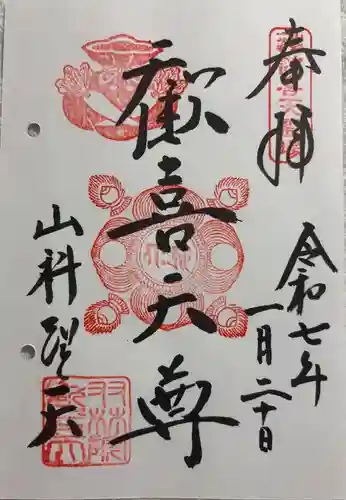 奉拝
令和七年
一月二十日
歓喜天尊
山科聖天